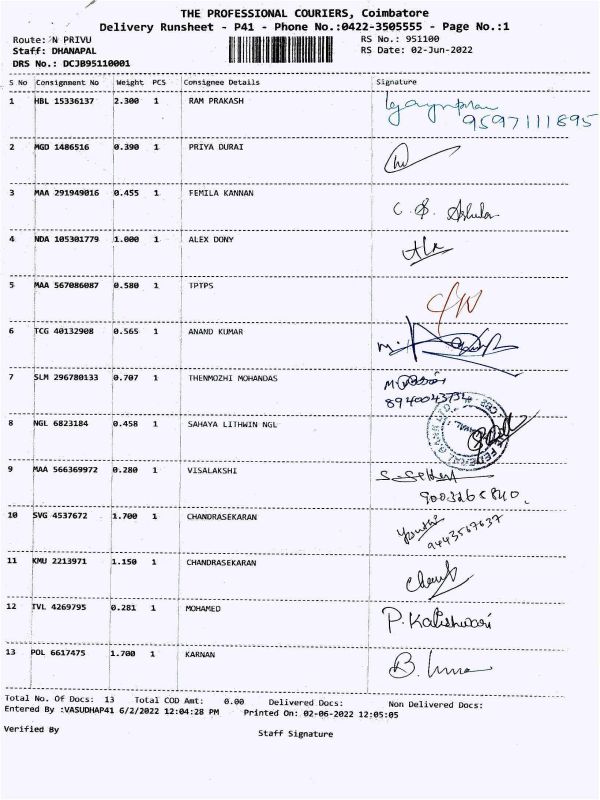 THE PROFESSIONAL COURIERS, Coimbatore
Delivery Runsheet - P41 - Phone No.:0422-3505555 - Page No.:1
Route: N PRIVU RS No.: 951100
Staff: DHANAPAL RS Date: 02-Jun-2022
DRS No.: DCJB95110001
S No Consignment No Weight PCS Consignee Details Signature
1 HBL 15336137 2.300 1 RAM PRAKASH
9597111895
2 MGD 1486516 0.390 1 PRIYA DURAI
3 MAA 291949016 0.455 1 FEMILA KANNAN
4 NDA 105301779 1.000 1 ALEX DONY
5 MAA 567086087 0.580 1 TPTPS
6 TCG 40132908 0.565 1 ANAND KUMAR
7 SLM 296780133 0.707 1 THENMOZHI MOHANDAS
8940043734
8 NGL 6823184 0.458 1 SAHAYA LITHWIN NGL
9 MAA 566369972 0.280 1 VISALAKSHI
10 SVG 4537672 1.700 1 CHANDRASEKARAN
9443567637
11 KMU 2213971 1.150 1 CHANDRASEKARAN
12 TVL 4269795 0.281 1 MOHAMED P. Kalishwari
13 POL 6617475 1.700 1 KARNAN
Total No. Of Docs: 13 Total COD Amt: 0.00 Delivered Docs: Non Delivered Docs:
Entered By :VASUDHAP41 6/2/2022 12:04:28 PM Printed On: 02-06-2022 12:05:05
Verified By Staff Signature